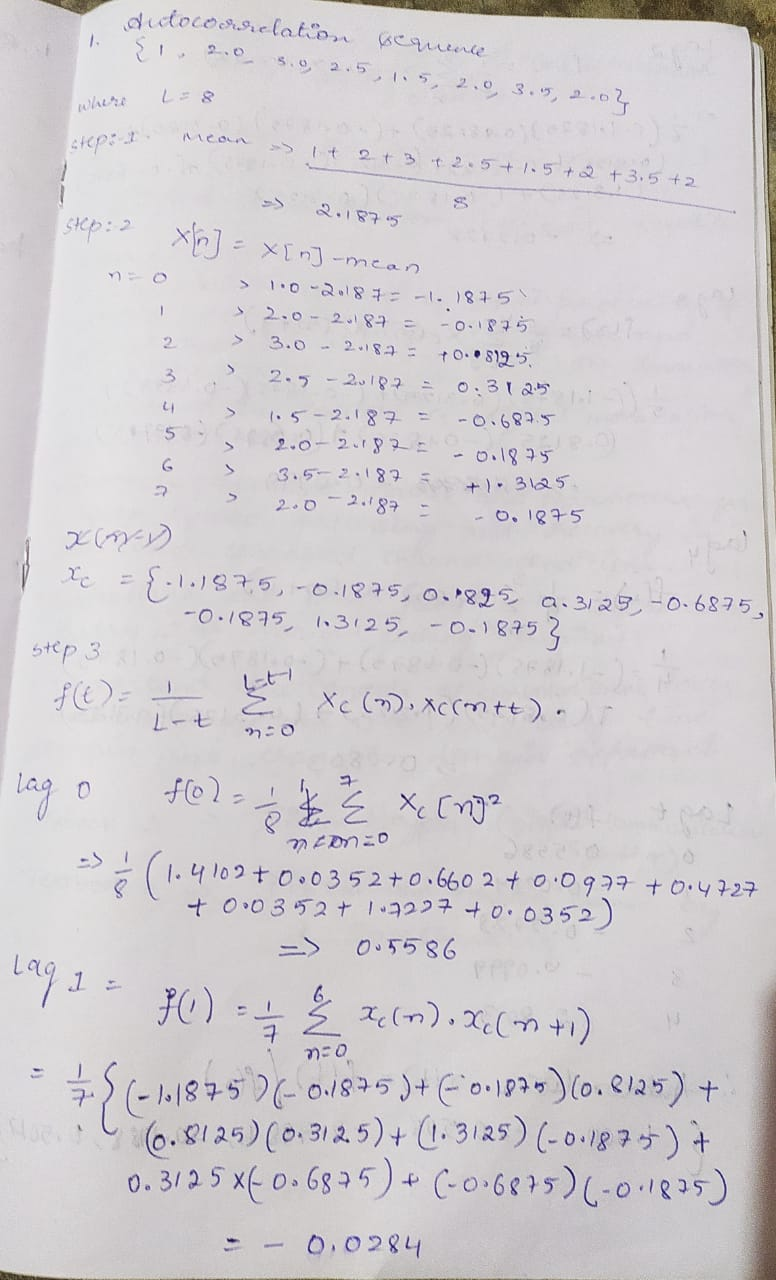 1. Autocorrelation sequence
{1, 2.0, 3.0, 2.5, 1.5, 2.0, 3.5, 2.0}
where L = 8
step:-1. mean => 1 + 2 + 3 + 2.5 + 1.5 + 2 + 3.5 + 2
8
=> 2.1875
step:2 x[n] = x[n] - mean
n = 0 > 1.0 - 2.187 = -1.1875
1 > 2.0 - 2.187 = -0.1875
2 > 3.0 - 2.187 = +0.8125
3 > 2.5 - 2.187 = 0.3125
4 > 1.5 - 2.187 = -0.6875
5 > 2.0 - 2.187 = -0.1875
6 > 3.5 - 2.187 = +1.3125
7 > 2.0 - 2.187 = -0.1875
xc = {-1.1875, -0.1875, 0.1825, 0.3125, -0.6875,
-0.1875, 1.3125, -0.1875}
step 3
f(t) = 1/L-t L-t-1 Σ n=0 xc(n). xc(n+t).
lag 0 f(0) = 1/8 7 Σ n=0 xc[n]²
=> 1/8 (1.4102 + 0.0352 + 0.6602 + 0.0977 + 0.4727
+ 0.0352 + 1.7227 + 0.0352)
=> 0.5586
Lag 1 =
f(1) = 1/7 6 Σ n=0 xc(n). xc(n+1)
= 1/7 {(-1.1875)(-0.1875) + (-0.1875)(0.8125) +
(0.8125)(0.3125) + (1.3125)(-0.1875) +
0.3125 x(-0.6875) + (-0.6875)(-0.1875)
= - 0.0284